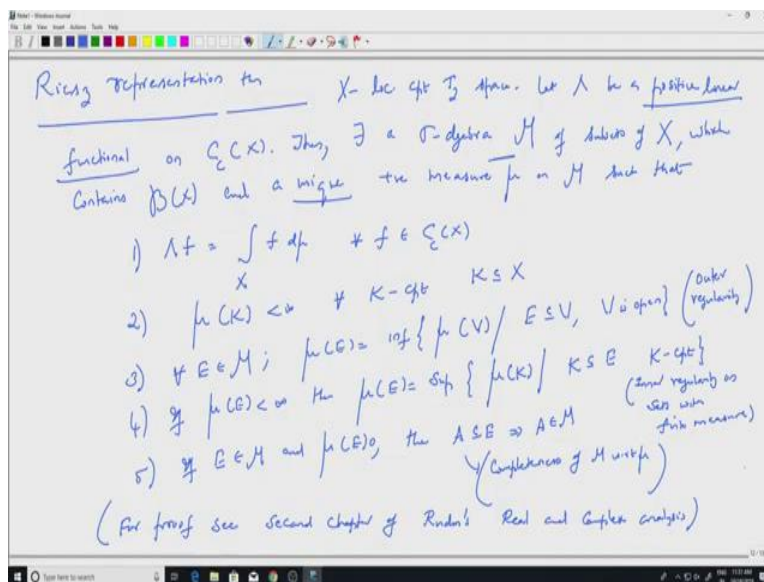 Note1 - Windows Journal
File Edit View Insert Actions Tools Help
Riesz representation thm X - loc cpt T2 space. Let Λ be a positive linear
functional on C_c(X). Then, ∃ a σ-algebra M of subsets of X, which
contains B(X) and a unique +ve measure μ on M such that
1) Λf = ∫_X f dμ ∀ f ∈ C_c(X)
2) μ(K) < ∞ ∀ K-cpt K ⊆ X
3) ∀ E ∈ M; μ(E) = inf { μ(V) / E ⊆ V, V is open} (Outer regularity)
4) If μ(E) < ∞ then μ(E) = Sup { μ(K) / K ⊆ E K-cpt}
(Inner regularity on sets with finite measure)
5) If E ∈ M and μ(E)0, then A ⊆ E ⇒ A ∈ M
(Completeness of M w.r.t μ)
(For proof see second chapter of Rudin's Real and Complex analysis)
Type here to search
ENG 11:31 AM